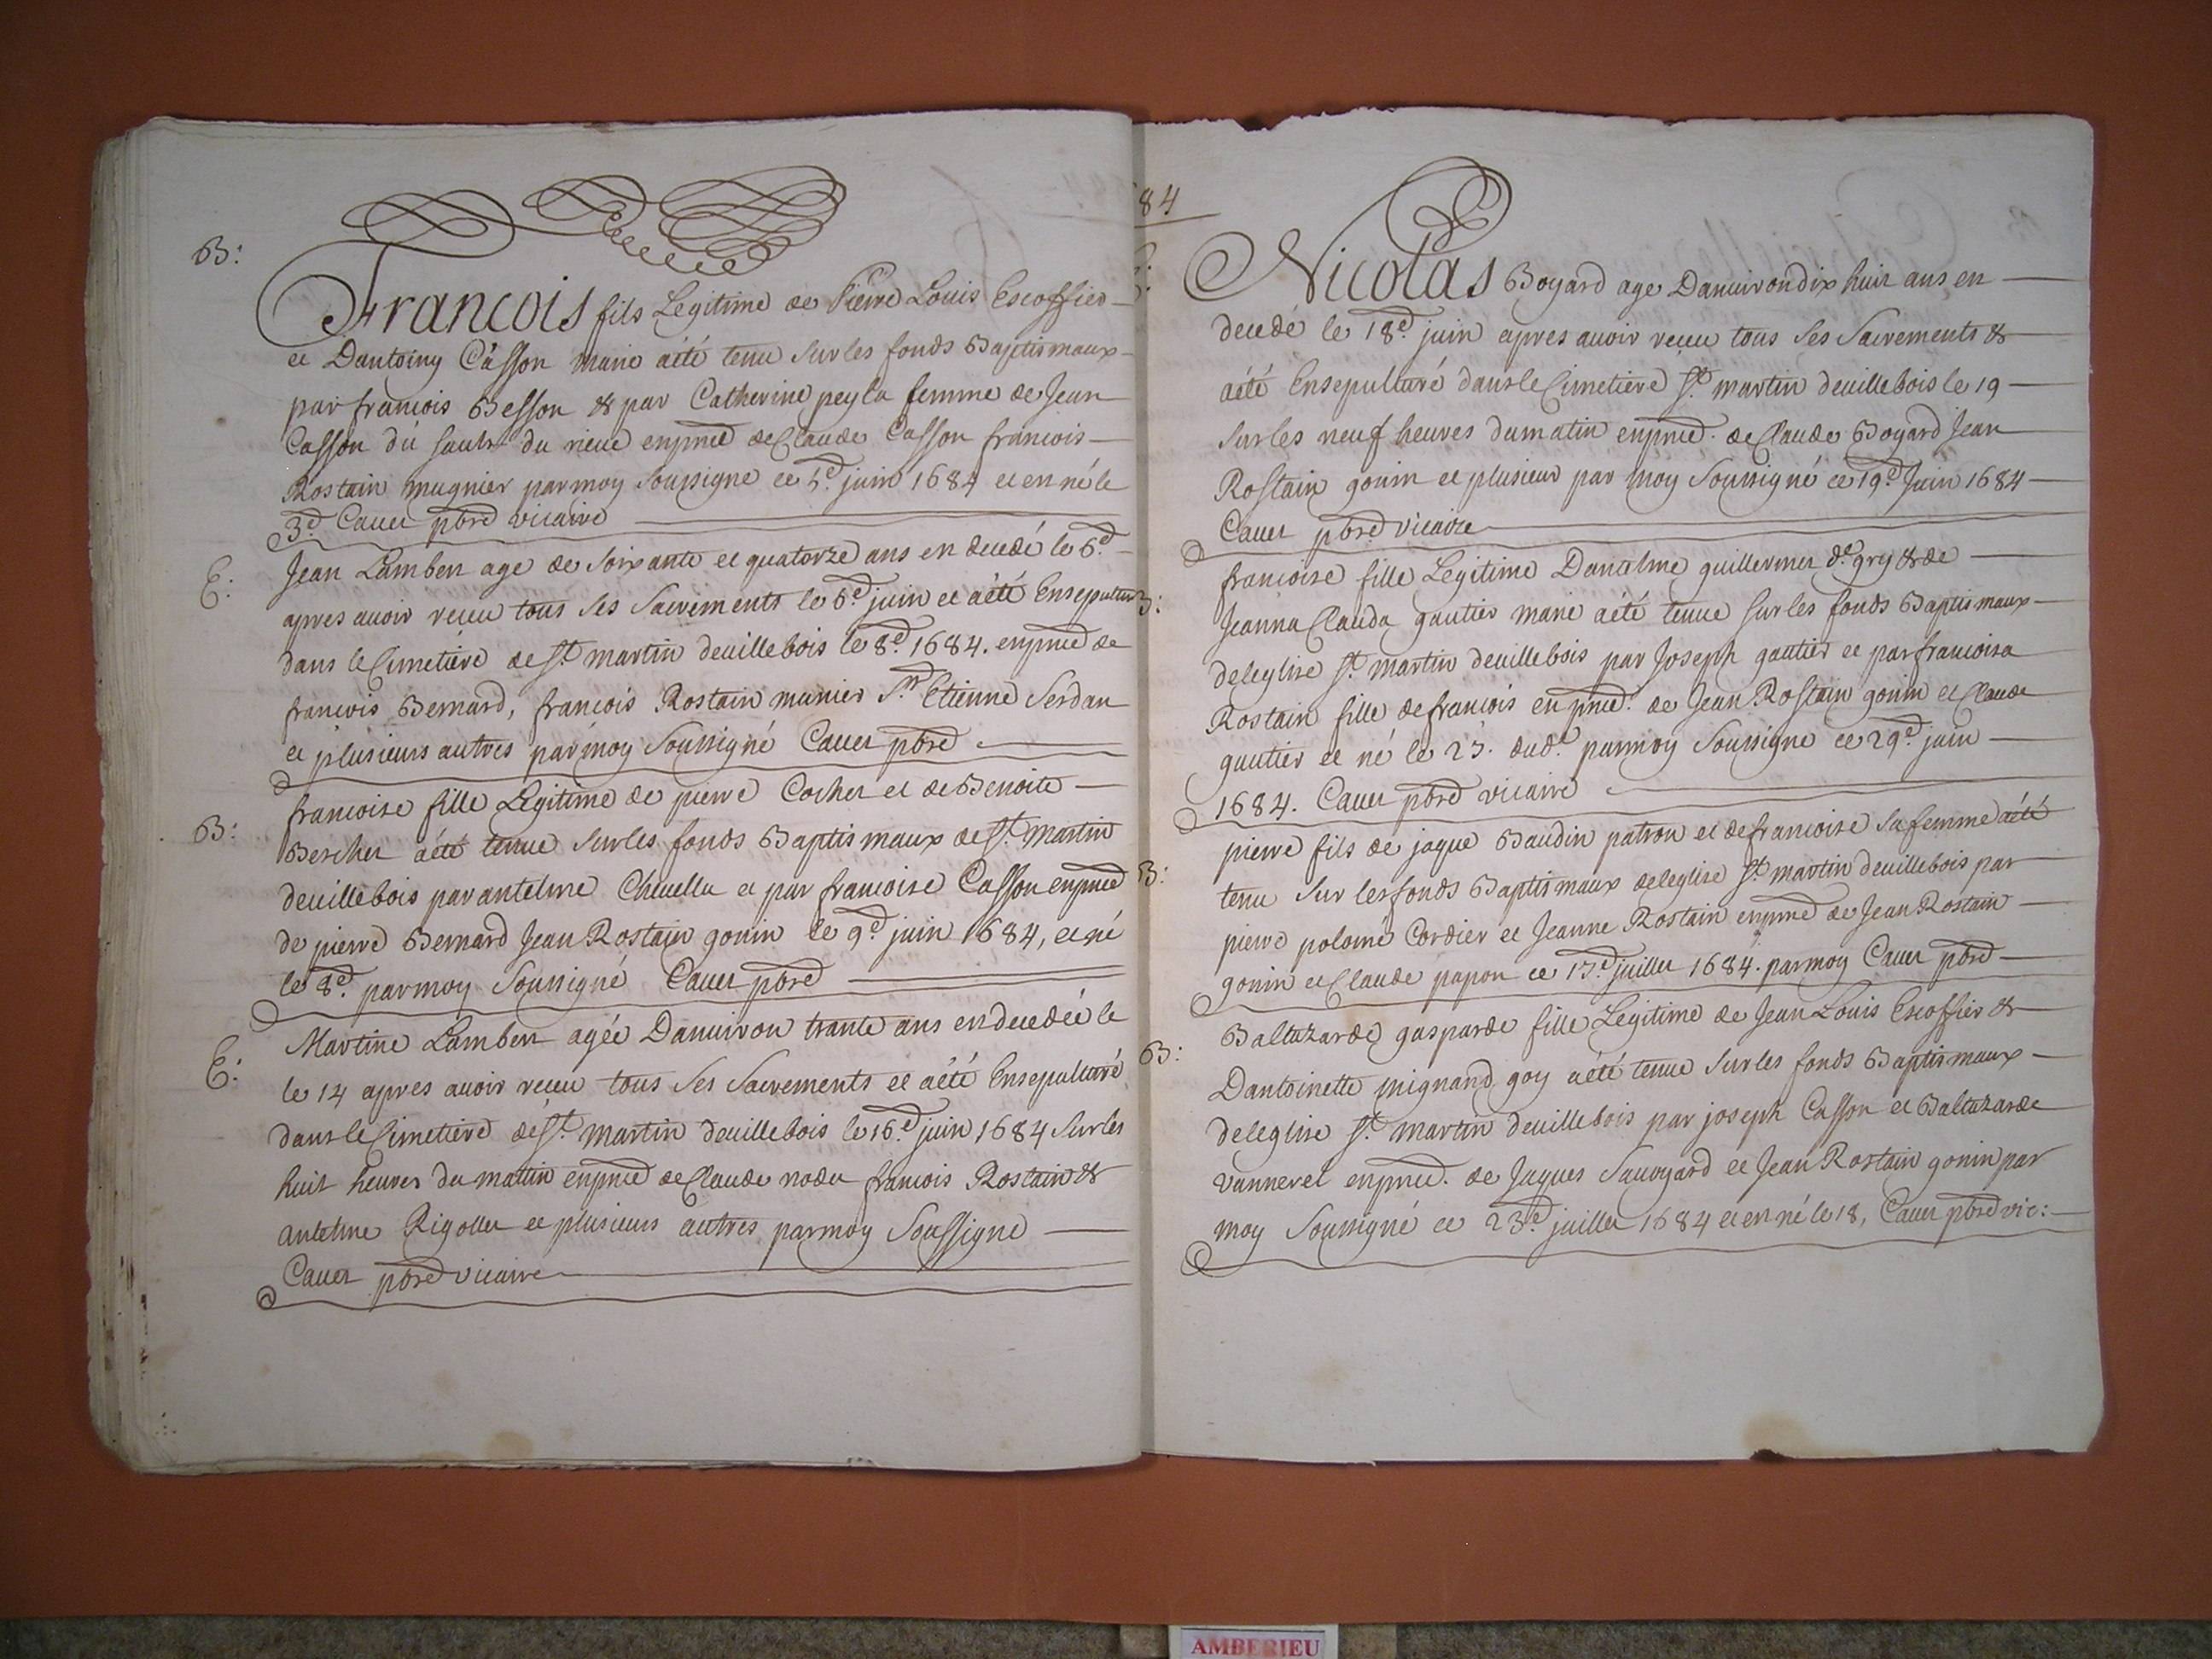 B:
François fils Legitime de Pierre Louis Escoffier
et Dantoiny Casson marié aété tenu Sur les fonds Baptismaux
par francois Besson & par Catherine peyla femme de Jean
Casson du sault du rieu enpnce de Claude Casson francois
Rostain mugnier par moy Soussigne ce 5e juin 1684 et en né le
3e Cauet pbre vicaire
E:
Jean Lambert age de Soixante et quatorze ans en decedé le 6e
apres avoir receu tous Ses Sacrements le 6e juin et aété Ensepultur
dans le Cimetiere de St martin deuillebois le 8e 1684. enpnce de
francois Bernard, francois Rostain munier Sr Etienne Serdan
et plusieurs autres par moy Soussigné Cauet pbre
B:
francoise fille Legitime de pierre Cocher et de Benoite
Bercher aété tenue Sur les fonds Baptismaux de St martin
deuillebois par antelme Chuuellu et par francoise Casson enpnce
de pierre Bernard Jean Rostain gonin le 9e juin 1684, et né
le 8e parmoy Soussigné Cauet pbre
E:
Martine Lambert agée Danuiron trante ans en decedée le
le 14 apres auoir receu tous Ses Sacrements et aété Ensepulturé
dans le Cimetiere de St martin deuillebois le 16e juin 1684 Sur les
huit heures du matin enpnce de Claude nodet francois Rostain &
antelme Rigollet et plusieurs autres parmoy Soussigne
Cauet pbre vicaire
84
Nicolas Bogard age Danuiron dix huit ans en
decedé le 18e juin apres auoir receu tous Ses Sacrements &
aété Ensepulturé dans le Cimetiere St martin deuillebois le 19
Sur les neuf heures du matin enpnce. de Claude Bogard Jean
Rostain gonin et plusieur par moy Soussigné ce 19e Juin 1684
Cauet pbre vicaire
B:
francoise fille Legitime Dantelme guillermet de gry & de
Jeanna Clauda gautier marié aété tenue Sur les fonds Baptismaux
deleglise St martin deuillebois par Joseph gautier et par francoisa
Rostain fille de francois enpnce. de Jean Rostain gonin et Claude
gautier et né le 23. dud. parmoy Soussigne ce 29e juin
1684. Cauet pbre vicaire
B:
pierre fils de jaque Baudin patron et de francoise Sa femme aété
tenu Sur les fonds Baptismaux deleglise St martin deuillebois par
pierre polomé Cordier et Jeanne Rostain enpnce de Jean Rostain
gonin et Claude papon ce 17e juillet 1684. parmoy Cauet pbre
B:
Baltazarde gasparde fille Legitime de Jean Louis Escoffier &
Dantoinette mignand goy aété tenue Sur les fonds Baptismaux
deleglise St martin deuillebois par joseph Casson et Baltazarde
vannerel enpnce. de Jaques Sauogard et Jean Rostain gonin par
moy Soussigné ce 23e juillet 1684 et en né le 18, Cauet pbre vic:
AMBERIEU